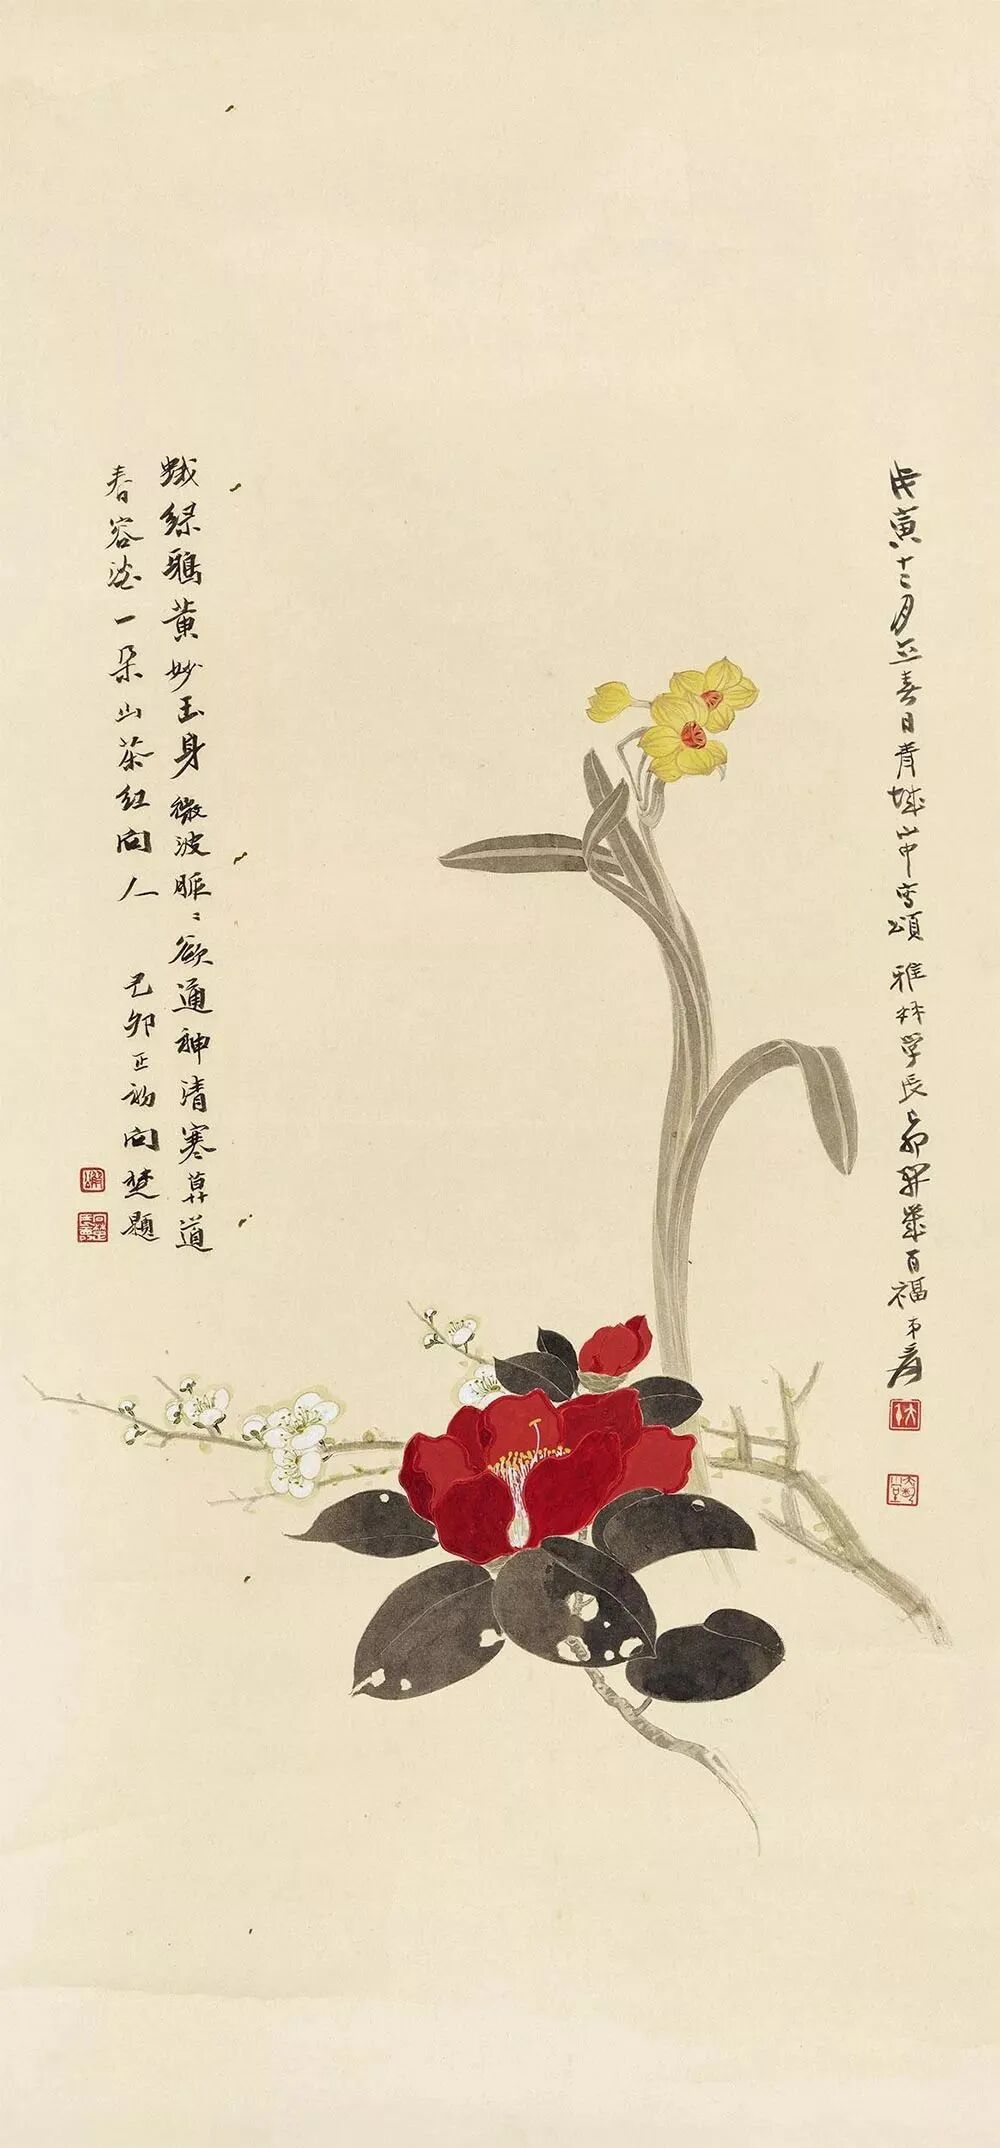 戊寅十二月立春日青城山中寫頌 雅林學長己卯開歲百福 弟爰
蛾綠鵶黃妙玉身微波脈〻欲通神清寒莫道
春容澹一朵山茶紅向人 己卯正初向楚題